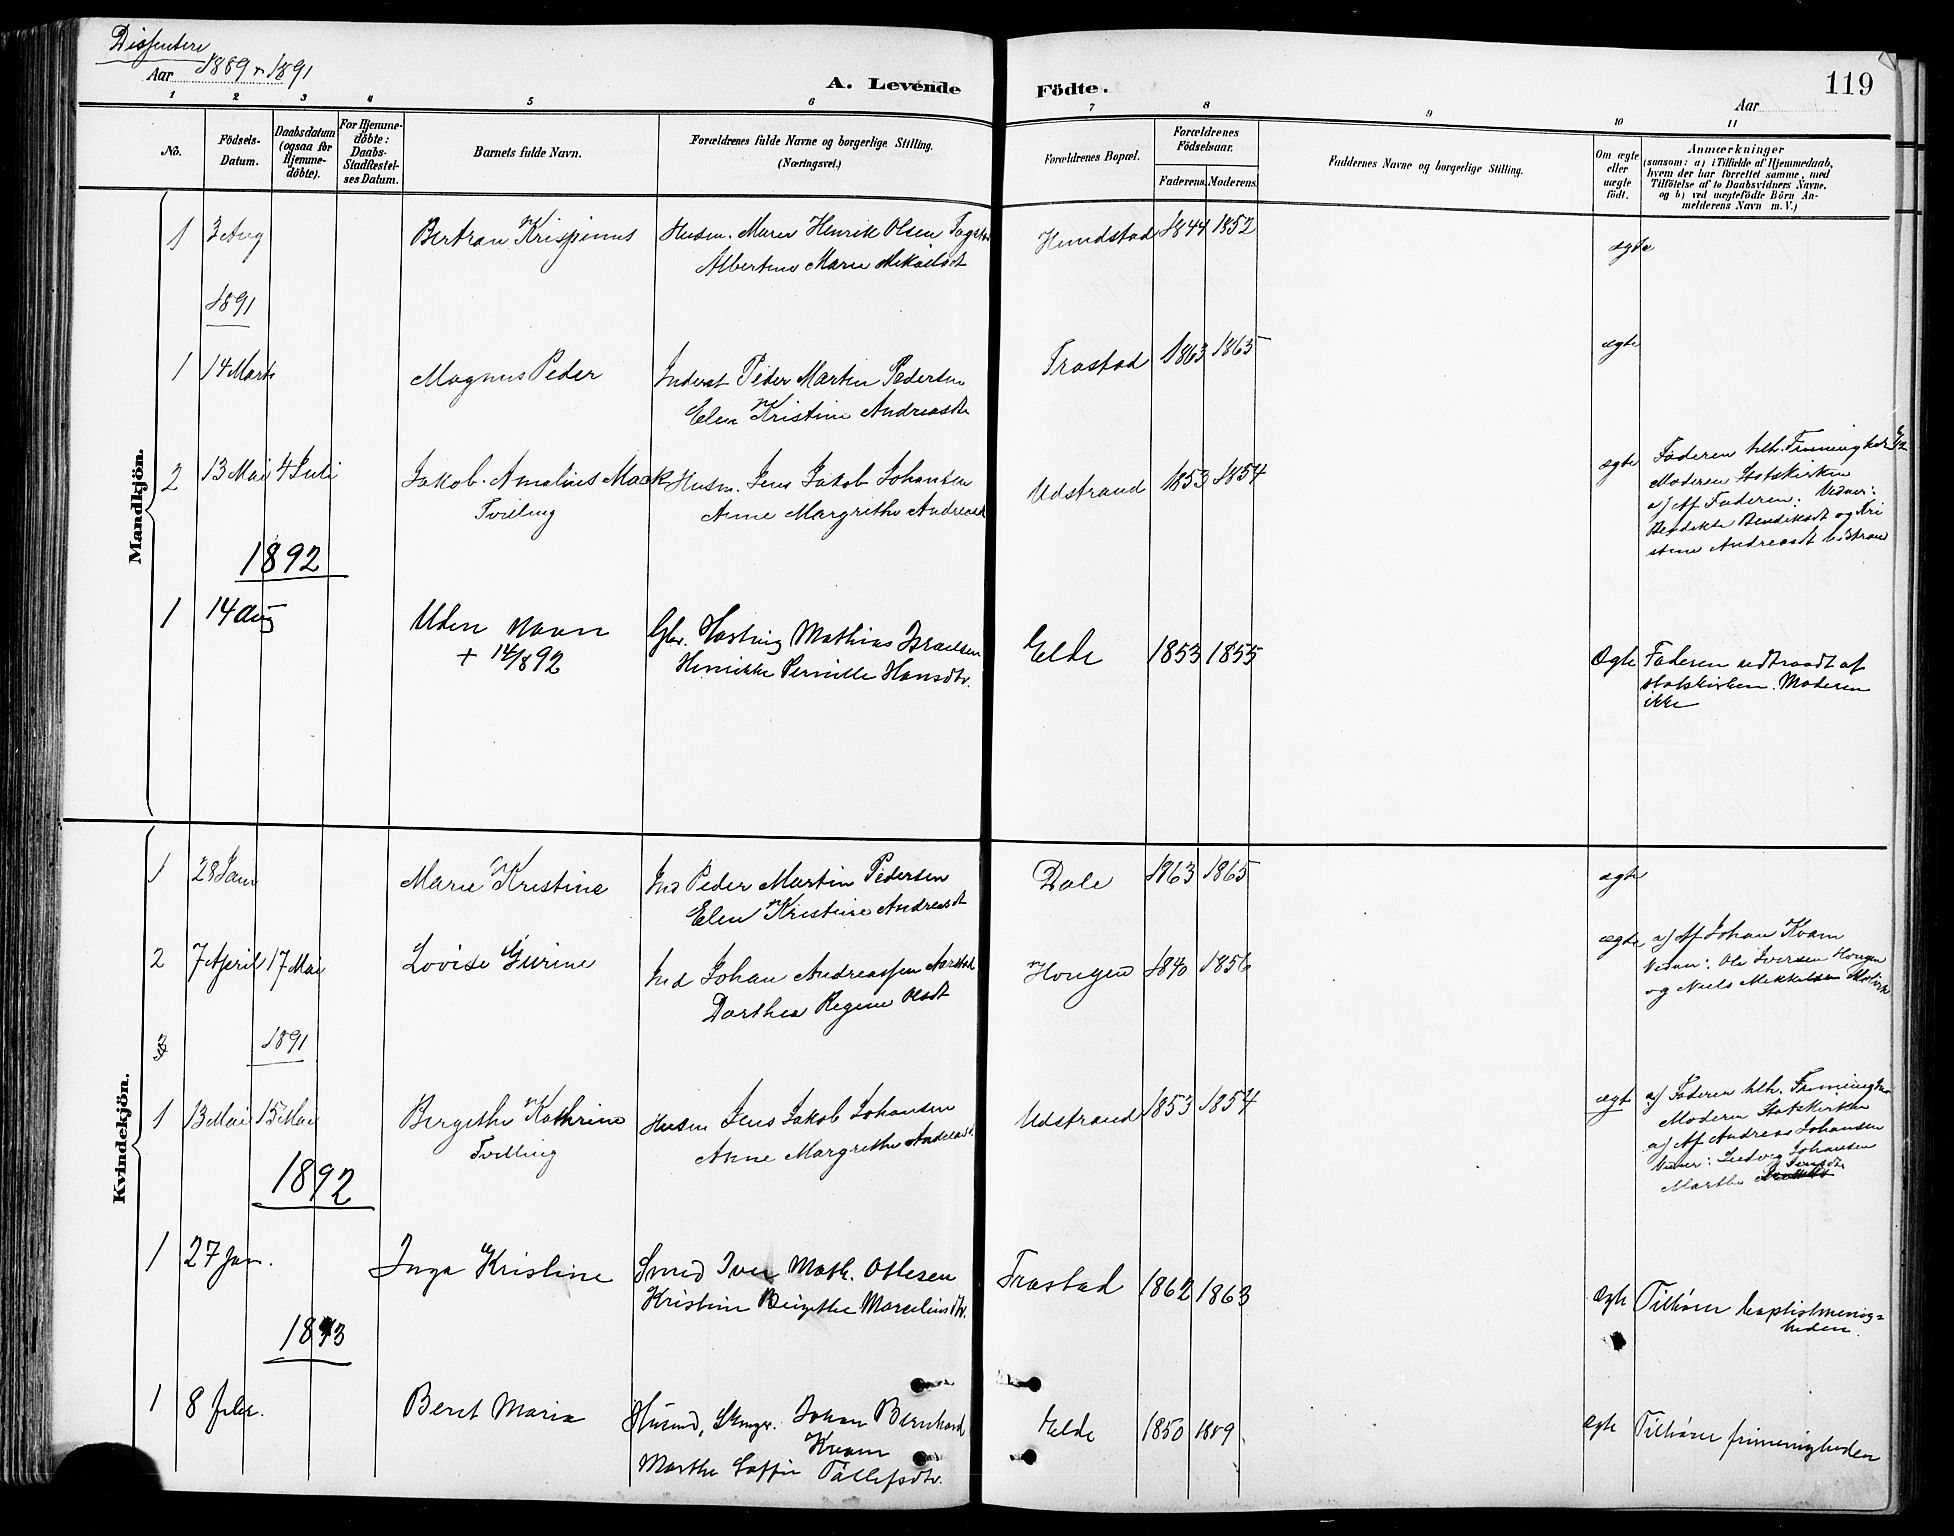 Dissentere
Aar 1889 - 1891
A. Levende Födte.
119
Aar
1 2 3 4 5 6 7 8 9 10 11
No.
Födsels-Datum.
Daabsdatum (ogsaa for Hjemme-döbte).
For Hjemme-döbte: Daabs-Stadfæstel-ses Datum.
Barnets fulde Navn.
Forældrenes fulde Navne og borgerlige Stilling. (Næringsvei.)
Forældrenes Bopæl.
Forældrenes Födselsaar.
Faderens. Moderens.
Faddernes Navne og borgerlige Stilling.
Om ægte eller uægte födt.
Anmærkninger
(saasom: a) i Tilfælde af Hjemmedaab, hvem der har forrettet samme, med Tilföielse af to Daabsvidners Navne, og b) ved uægtefödte Börn An-melderens Navn m. V.)
Mandkjön.
1 3 Aug Bertran Krispinus Husm. Murer Henrik Olsen Hundstad 1844 1852 ægte
Albertine Marie Mikaelsdt
1891
1 14 Marts Magnus Peder Inderst Peder Martin Pedersen Trastad 1863 1865 ægte
Elen Kristine Andreasdt
2 13 Mai 4 Juli Jakob Amalius Maak Husm. Jens Jakob Johansen Udstrand 1853 1854 ægte Faderen tilh. Frimenigheden
Tvilling Anne Margrethe Andreasd Moderen Statskirken
a) Af Faderen. Vidner:
Bendikte Bendiksdt og Kri
stine Andreasdt Udstrand
1892
1 14 Aug Uden navn Gbr. Hartvig Mathias Israelsen Elde 1853 1855 Ægte Faderen udtraadt af
+ 14/8 92 Henrikke Pernille Hansdtr. statskirken. Moderen
ikke
Kvindekjön.
1 28 Janr Marie Kristine Ind Peder Martin Pedersen Dale 1863 1865 ægte
Elen Kristine Andreasdt
2 7 April 17 Mai Lovise Gurine Ind Johan Andreassen Aarstad Hougen 1840 1856 ægte a) Af Johan Kvam
Dorthea Regine Olsdt Vidner: Ole Iversen Hougen
og Niels Mikkelsen
3
1891
1 13 Mai 15 Mai Bergithe Kathrine Husm Jens Jakob Johansen Udstrand 1853 1854 ægte a) Faderen tilh. Frimenigh
Tvilling Anne Margrethe Andreasd. Moderen Statskirken
a) Af Andreas Johansen
Vidner: Ludvig Johansen
Marthe Jensdt
1892
1 27 Jan. Inga Kristine Smed Iver Math. Ottesen Trastad 1862 1863 Ægte Tilhører baptistmenig-
Kristine Birgithe Marseliusdtr. heden.
1893
1 8 febr. Beret Maria Husmd, Johan Bernhard Elde 1850 1859 Ægte Tilhører frimenigheden
Kvam
Marthe Soffie Tollefsdtr.